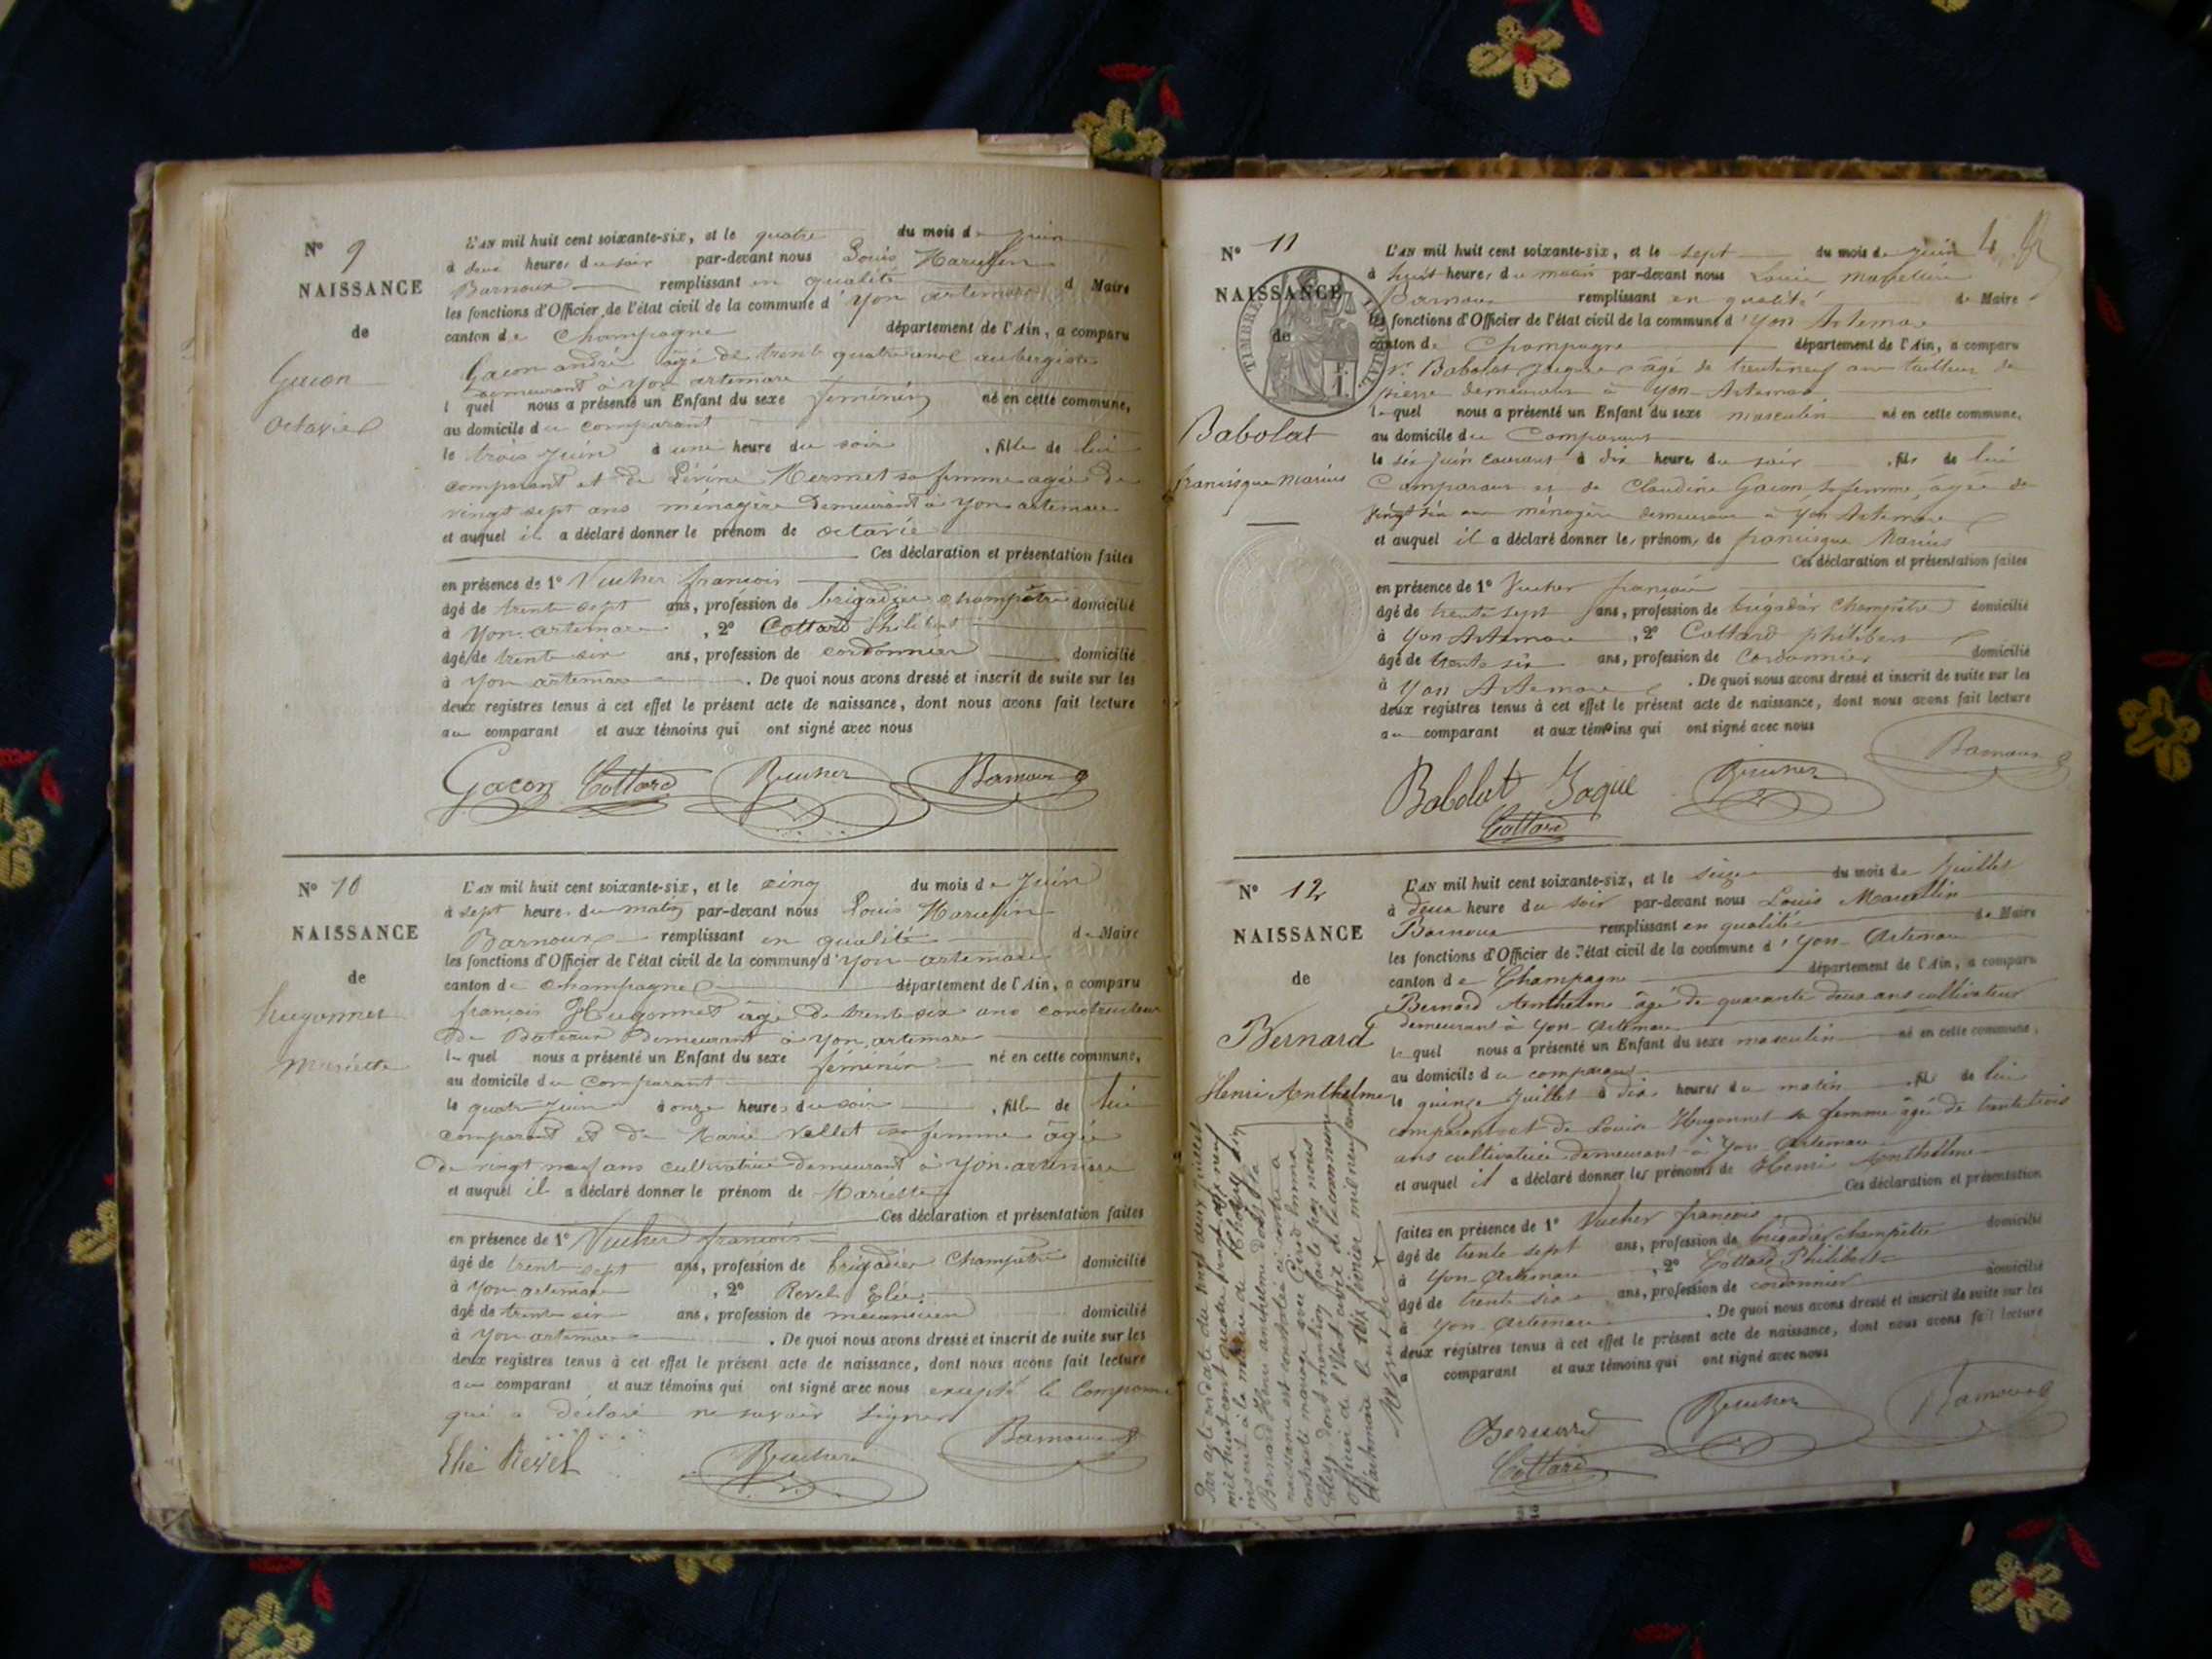 N° 9
NAISSANCE
de
Gacon
Octavie
L'AN mil huit cent soixante-six, et le quatre du mois de juin
à deux heures du soir par-devant nous Louis Marcelin
Barnoux remplissant en qualité d Maire
les fonctions d'Officier de l'état civil de la commune d'yon artemare
canton de Champagne département de l'Ain, a comparu
Gacon andré agé de trente quatre ans aubergiste
demeurant à yon artemare
l quel nous a présenté un Enfant du sexe féminin né en cette commune,
au domicile du comparant
le trois juin à une heure du soir, fille de lui
comparant et de Mermet sa femme agée de
vingt sept ans ménagère demeurant à yon artemare
et auquel il a déclaré donner le prénom de octavie
Ces déclaration et présentation faites
en présence de 1° Vucher françois
âgé de trente sept ans, profession de brigadier champêtre domicilié
à yon artemare, 2° Cottard Philibert
âgé de trente six ans, profession de cordonnier domicilié
à yon artemare. De quoi nous avons dressé et inscrit de suite sur les
deux registres tenus à cet effet le présent acte de naissance, dont nous avons fait lecture
au comparant et aux témoins qui ont signé avec nous
Gacon Cottard Vucher Barnoux
N° 10
NAISSANCE
de
hugonnet
Mariette
L'AN mil huit cent soixante-six, et le cinq du mois de juin
à sept heures du matin par-devant nous Louis Marcelin
Barnoux remplissant en qualité de Maire
les fonctions d'Officier de l'état civil de la commune d'yon artemare
canton de champagne département de l'Ain, a comparu
françois Hugonnet agé de trente six ans constructeur
de Bateaux demeurant à yon artemare
le quel nous a présenté un Enfant du sexe féminin né en cette commune,
au domicile du comparant
le quatre juin à onze heures du soir, fille de lui
comparant et de Marie Vallet sa femme âgée
de vingt neuf ans cultivatrice demeurant à yon artemare
et auquel il a déclaré donner le prénom de Mariette
Ces déclaration et présentation faites
en présence de 1° Vucher françois
âgé de trente sept ans, profession de brigadier Champêtre domicilié
à yon artemare, 2° Revel Elie
âgé de trente six ans, profession de mécanicien domicilié
à yon artemare. De quoi nous avons dressé et inscrit de suite sur les
deux registres tenus à cet effet le présent acte de naissance, dont nous avons fait lecture
au comparant et aux témoins qui ont signé avec nous excepté le Comparant
qui a déclaré ne savoir signer
Elie Revel Vucher Barnoux
4
N° 11
NAISSANCE
de
TIMBRE
Babolat
francisque Marius
L'AN mil huit cent soixante-six, et le sept du mois de juin
à huit heures du matin par-devant nous Louis Marcelin
Barnoux remplissant en qualité de Maire
les fonctions d'Officier de l'état civil de la commune d'yon Artemare
canton de Champagne département de l'Ain, a comparu
Babolat Jacques âgé de trente neuf ans tailleur de
pierre demeurant à yon Artemare
lequel nous a présenté un Enfant du sexe masculin né en cette commune,
au domicile du Comparant
le six juin courant à dix heures du soir, fils de lui
Comparant et de Claudine Gacon sa femme, âgée de
vingt six ans ménagère demeurant à yon Artemare
et auquel il a déclaré donner les prénoms de francisque Marius
Ces déclaration et présentation faites
en présence de 1° Vucher françois
âgé de trente sept ans, profession de brigadier Champêtre domicilié
à yon Artemare, 2° Cottard philibert
âgé de trente six ans, profession de Cordonnier domicilié
à yon Artemare. De quoi nous avons dressé et inscrit de suite sur les
deux registres tenus à cet effet le présent acte de naissance, dont nous avons fait lecture
au comparant et aux témoins qui ont signé avec nous
Babolat Jaque Vucher Barnoux
Cottard
N° 12
NAISSANCE
de
Bernard
Henri Anthelme
L'AN mil huit cent soixante-six, et le seize du mois de juillet
à deux heure du soir par-devant nous Louis Marcellin
Barnoux remplissant en qualité de Maire
les fonctions d'Officier de l'état civil de la commune d'yon Artemare
canton de Champagne département de l'Ain, a comparu
Bernard Anthelme âgé de quarante deux ans cultivateur
demeurant à yon Artemare
lequel nous a présenté un Enfant du sexe masculin né en cette commune,
au domicile du comparant
le quinze juillet à dix heures du matin, fils de lui
comparant et de Louise Hugonnet sa femme âgée de trente trois
ans cultivatrice demeurant à yon Artemare
et auquel il a déclaré donner les prénoms de Henri Anthelme
Ces déclaration et présentation
faites en présence de 1° Vucher françois
âgé de trente sept ans, profession de brigadier champêtre domicilié
à yon Artemare, 2° Cottard Philibert
âgé de trente six ans, profession de cordonnier domicilié
à yon Artemare. De quoi nous avons dressé et inscrit de suite sur les
deux registres tenus à cet effet le présent acte de naissance, dont nous avons fait lecture
a comparant et aux témoins qui ont signé avec nous
Bernard Vucher Barnoux
Cottard
Par acte en date du vingt deux juillet
mil huit cent quatre vingt dix neuf
inscrit à la mairie de
Bernard Henri anthelme dont la
naissance est constatée ci contre a
contracté mariage avec
dont mention faite par nous
officier de l'état civil de la commune
d'artemare le dix février mil neuf cent